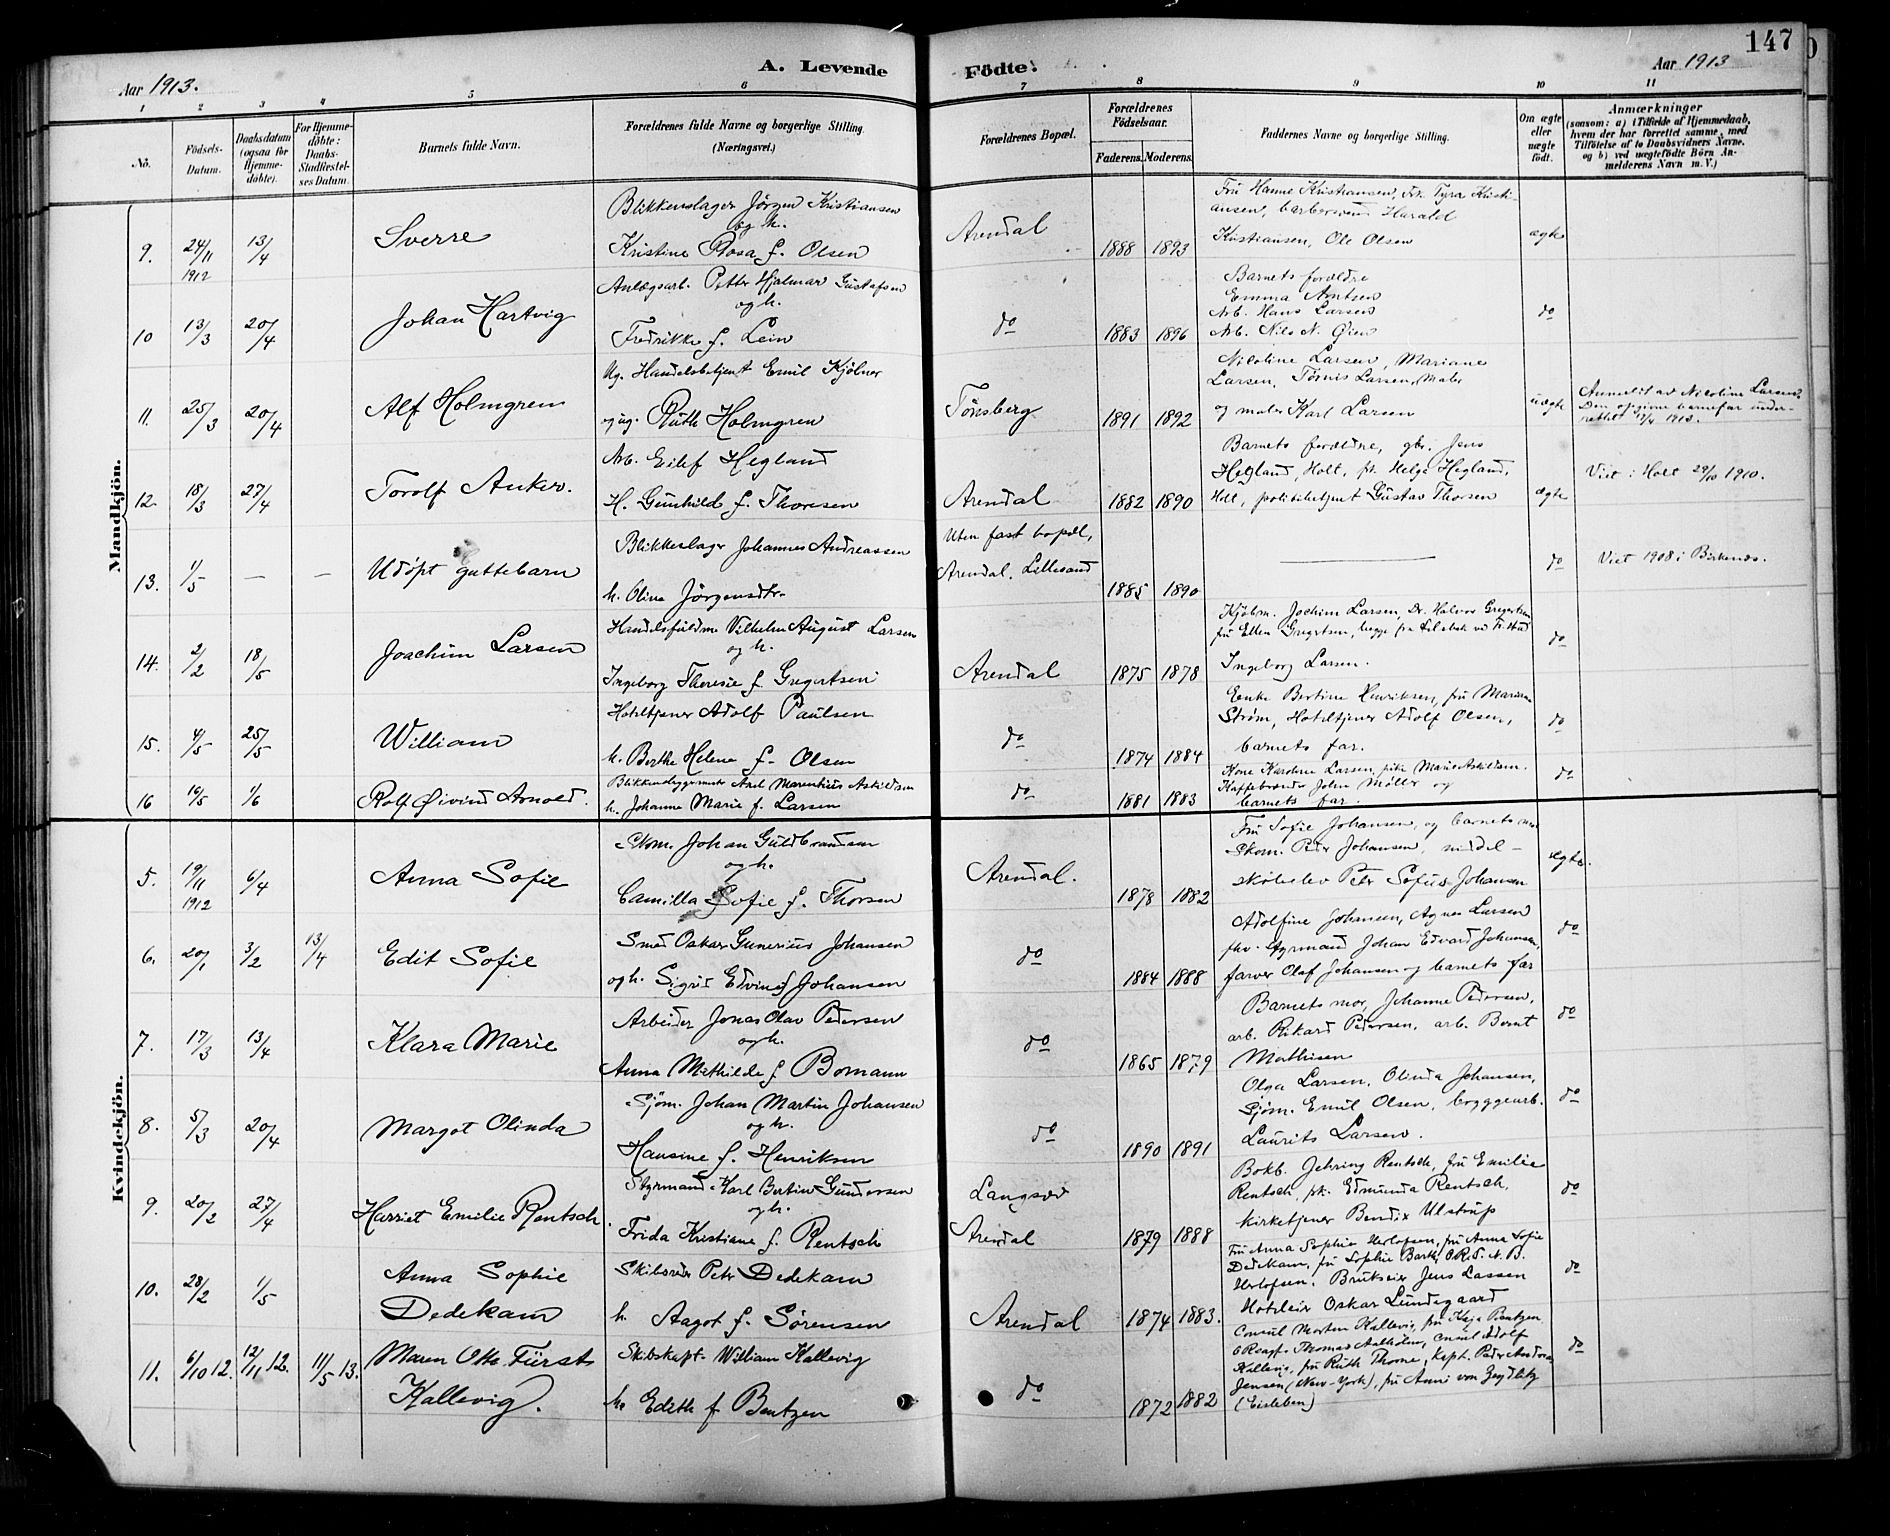 147
Aar 1913.
A. Levende
Födte.
Aar 1913
1 2 3 4 5 6 7 8 9 10 11
No.
Födsels-
Datum.
Daabsdatum
(ogsaa for
Hjemme-
döbte).
For Hjemme-
döbte:
Daabs-
Stadfæstel-
ses Datum.
Barnets fulde Navn.
Forældrenes fulde Navne og borgerlige Stilling.
(Næringsvei.)
Forældrenes Bopæl.
Forældrenes
Födselsaar.
Faderens. Moderens.
Faddernes Navne og borgerlige Stilling.
Om ægte
eller
uægte
födt.
Anmærkninger
(saasom: a) i Tilfælde af Hjemmedaab,
hvem der har forrettet samme, med
Tilföielse af to Daabsvidners Navne.
og b) ved uægtefödte Börn An-
melderens Navn m. V.)
Mandkjön.
9. 24/11 1912 13/4 Sverre
Blikkenslager Jörgen Kristiansen
og h.
Kristine Rosa f. Olsen
Arendal 1888 1893
Fru Hanne Kristiansen, frk. Tyra Kristi-
ansen, barbersvend Harald
Kristiansen, Ole Olsen
ægte
10 13/3 20/4 Johan Hartvig
Anlægsarb. Petter Hjalmar Gustafsen
og h.
Fredrikke f. Lein
do 1883 1896
Barnets forældre
Emma Arntsen
Arb. Hans Larsen
Arb. Nils N. Øien
do
11. 25/3 20/4 Alf Holmgren
Ug. Handelsbetjent Emil Kjölner
og ug. Ruth Holmgren
Tönsberg 1891 1892
Nicoline Larsen, Mariane
Larsen, Tönnis Larsen, Maler
og maler Karl Larsen
uægte
Anmeldt av Nicoline Larsen.
Den opgivne barnefar under-
rettet 17/4 1913.
12. 18/3 27/4 Torolf Anker.
Arb. Eilef Hegland
H. Gunhild f. Thoresen
Arendal 1882 1890
Barnets forældre, gbr. Jens
Hegland, Holt, pk. Helga Hegland,
Holt, politibetjent Gustav Thorsen
ægte
Viet i Holt 29/10 1910.
13. 1/5 — — Udöpt guttebarn
Blikkeslager Johannes Andreassen
h. Olina Jörgensdtr.
Uten fast bopæl,
Arendal, Lillesand 1885 1890
do
Viet 1908 i Birkenes.
14. 2/2 18/5 Joachim Larsen
Handelsfuldm. Vilhelm August Larsen
og h.
Ingeborg Theresie f. Gregertsen
Arendal 1875 1878
Kjöbm. Jochim Larsen, Dr. Halvor Gregertsen
fru Ellen Gregertsen, begge fra Lilebæk ved Fr.stad
Ingeborg Larsen.
do
15. 4/5 25/5 William
Hoteltjener Adolf Paulsen
h. Berthe Helene f. Olsen
do 1874 1884
Enke Bertine Henriksen, fru Mariane
Strøm, Hoteltjener Adolf Olsen,
barnets far.
do
16 16/5 1/6 Rolf Øivind Arnold.
Axel Marenhius Askildsen
h. Johanne Marie f. Larsen
do 1881 1883
Kone Karoline Larsen, pike Marie Askildsen.
Kaffebrænder John Møller og
barnets far.
do
Kvindekjön.
5. 19/11 1912 6/4 Anna Sofie
Skom. Johan Guldbrandsen
og h.
Camilla Sofie f. Thorsen
Arendal. 1878 1882
Fru Sofie Johansen, og barnets mor
Skom. Peder Johansen, middel-
skoleelev Petr Sofus Johansen
ægte.
6. 20/1 3/2 13/4 Edit Sofie
Smed Oskar Gunerius Johansen
og h. Sigrid Edvine f. Johansen
do 1884 1888
Adolfine Johansen, Agnes Larsen
fhv. styrmand Johan Edvard Johansen,
farver Olaf Johansen og barnets far
do
7. 17/3 13/4 Klara Marie
Arbeider Jonas Olav Pedersen
og h.
Anna Mathilde f. Bomann
do 1865 1879
Barnets mor, Johanne Pedersen,
arb. Rikard Pedersen, arb. Bernt
Mathisen
do
8. 5/3 20/4 Margot Olinda
Sjöm. Johan Martin Johansen
og h.
Hansine f. Henriksen
do 1890 1891
Olga Larsen, Olinda Johansen,
Sjöm. Emil Olsen, bryggearb.
Laurits Larsen.
do
9. 20/2 27/4 Harriet Emilie Rentsch.
Styrmand Karl Bertin Gundersen
og h.
Frida Kristiane f. Rentsch
Langsæv
Arendal 1879 1888
Bokb. Jehring Rentsch, fru Emilie
Rentsch, pk. Edmunda Rentsch,
kirketjener Bendix Ulstrup
do
10. 28/2 1/5 Anna Sophie
Dedekam
Skibsreder Petr Dedekam
h. Aagot f. Sörensen
Arendal 1874 1883.
Fru Anna Sophie Herlofsen, fru Anna Sofie
Dedekam, fru Sophie Barth, O.R.S. N. B.
Herlofsen, Brukseier Jens Lassen
Hoteleier Oskar Lundegaard
do
11. 6/10 12. 12/11 12. 11/5 13. Maren Otto Fürst
Kallevig.
Skibskapt. William Kallevig
h. Edith f Bentzen
do 1872 1882
Consul Morten Kallevig, fru Kaja Bentzen
ORsagf. Thomas Aalholm, consul Adolf
Kallevig, fru Ruth Thorne, Kapt. Peder Andreas
Jensen (New-York), fru Anni von Zeydlitz
(Eisleben)
do